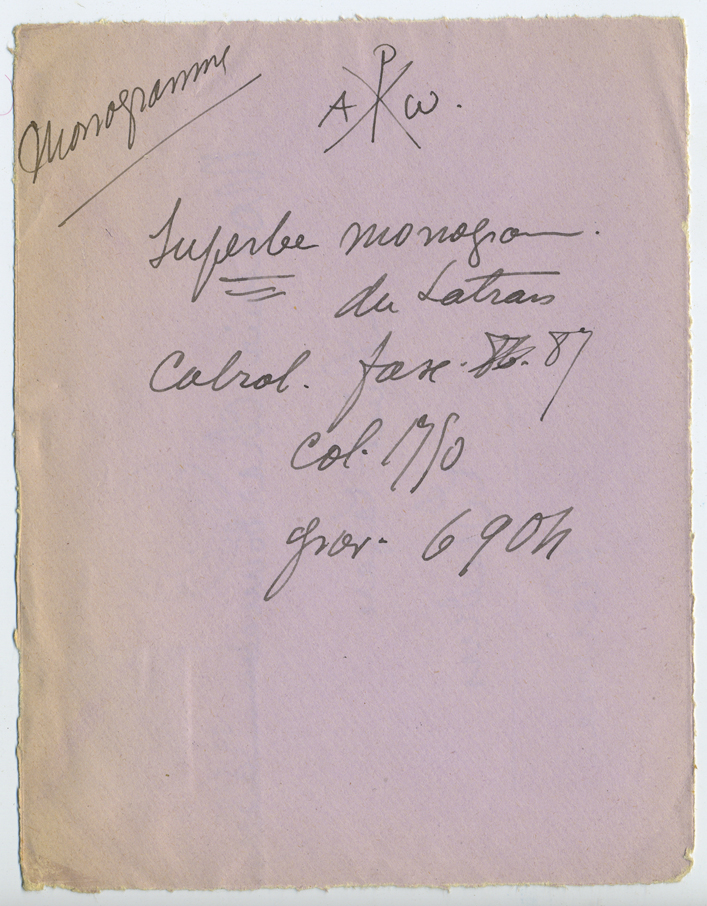 Monogramme
A ☧ ω.
Superbe monogram.
du Latran
Cabrol. fasc. 86. 87
col. 1750
grav. 6904